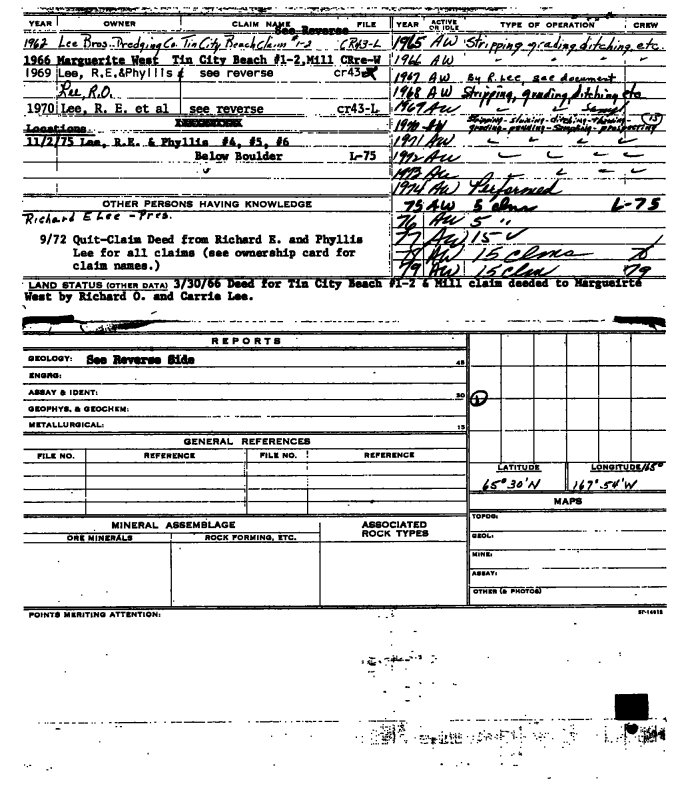 YEAR OWNER CLAIM NAME FILE
See Reverse
1962 Lee Bros. Dredging Co. Tin City Beach Claim #1-2 CR43-L
1966 Marguerite West Tin City Beach #1-2,Mill CRre-W
1969 Lee, R,E,&Phyllis & see reverse cr43
Lee, R.O.
1970 Lee, R. E. et al see reverse cr43-L
Locations
11/2/75 Lee, R.E. & Phyllis #4, #5, #6
Below Boulder L-75
OTHER PERSONS HAVING KNOWLEDGE
Richard E Lee - Pres.
9/72 Quit-Claim Deed from Richard E. and Phyllis
Lee for all claims (see ownership card for
claim names.)
YEAR ACTIVE OR IDLE TYPE OF OPERATION CREW
1965 AW Stripping, grading, ditching, etc.
1966 AW " " " "
1967 AW By R. Lee, see document
1968 AW Stripping, grading, ditching etc
1969 AW " " Samp
1970 AW Stripping - sluicing - ditching - thawing - (15)
grading - ponding - Sampling - prospecting
1971 AW
1972 AW
1973 AW
1974 AW Performed
75 AW 5 clms L-75
76 AW 5 "
77 AW 15
78 AW 15 clms 78
79 AW 15 clm 79
LAND STATUS (OTHER DATA) 3/30/66 Deed for Tin City Beach #1-2 & Mill claim deeded to Margueirte
West by Richard O. and Carrie Lee.
REPORTS
GEOLOGY: See Reverse Side 45
ENGRG:
ASSAY & IDENT: 30
GEOPHYS. & GEOCHEM:
METALLURGICAL: 15
GENERAL REFERENCES
FILE NO. REFERENCE FILE NO. REFERENCE
1
LATITUDE LONGITUDE/65°
65° 30' N 167° 54' W
MINERAL ASSEMBLAGE
ORE MINERALS ROCK FORMING, ETC.
ASSOCIATED
ROCK TYPES
MAPS
TOPOG:
GEOL:
MINE:
ASSAY:
OTHER (& PHOTOS)
POINTS MERITING ATTENTION: